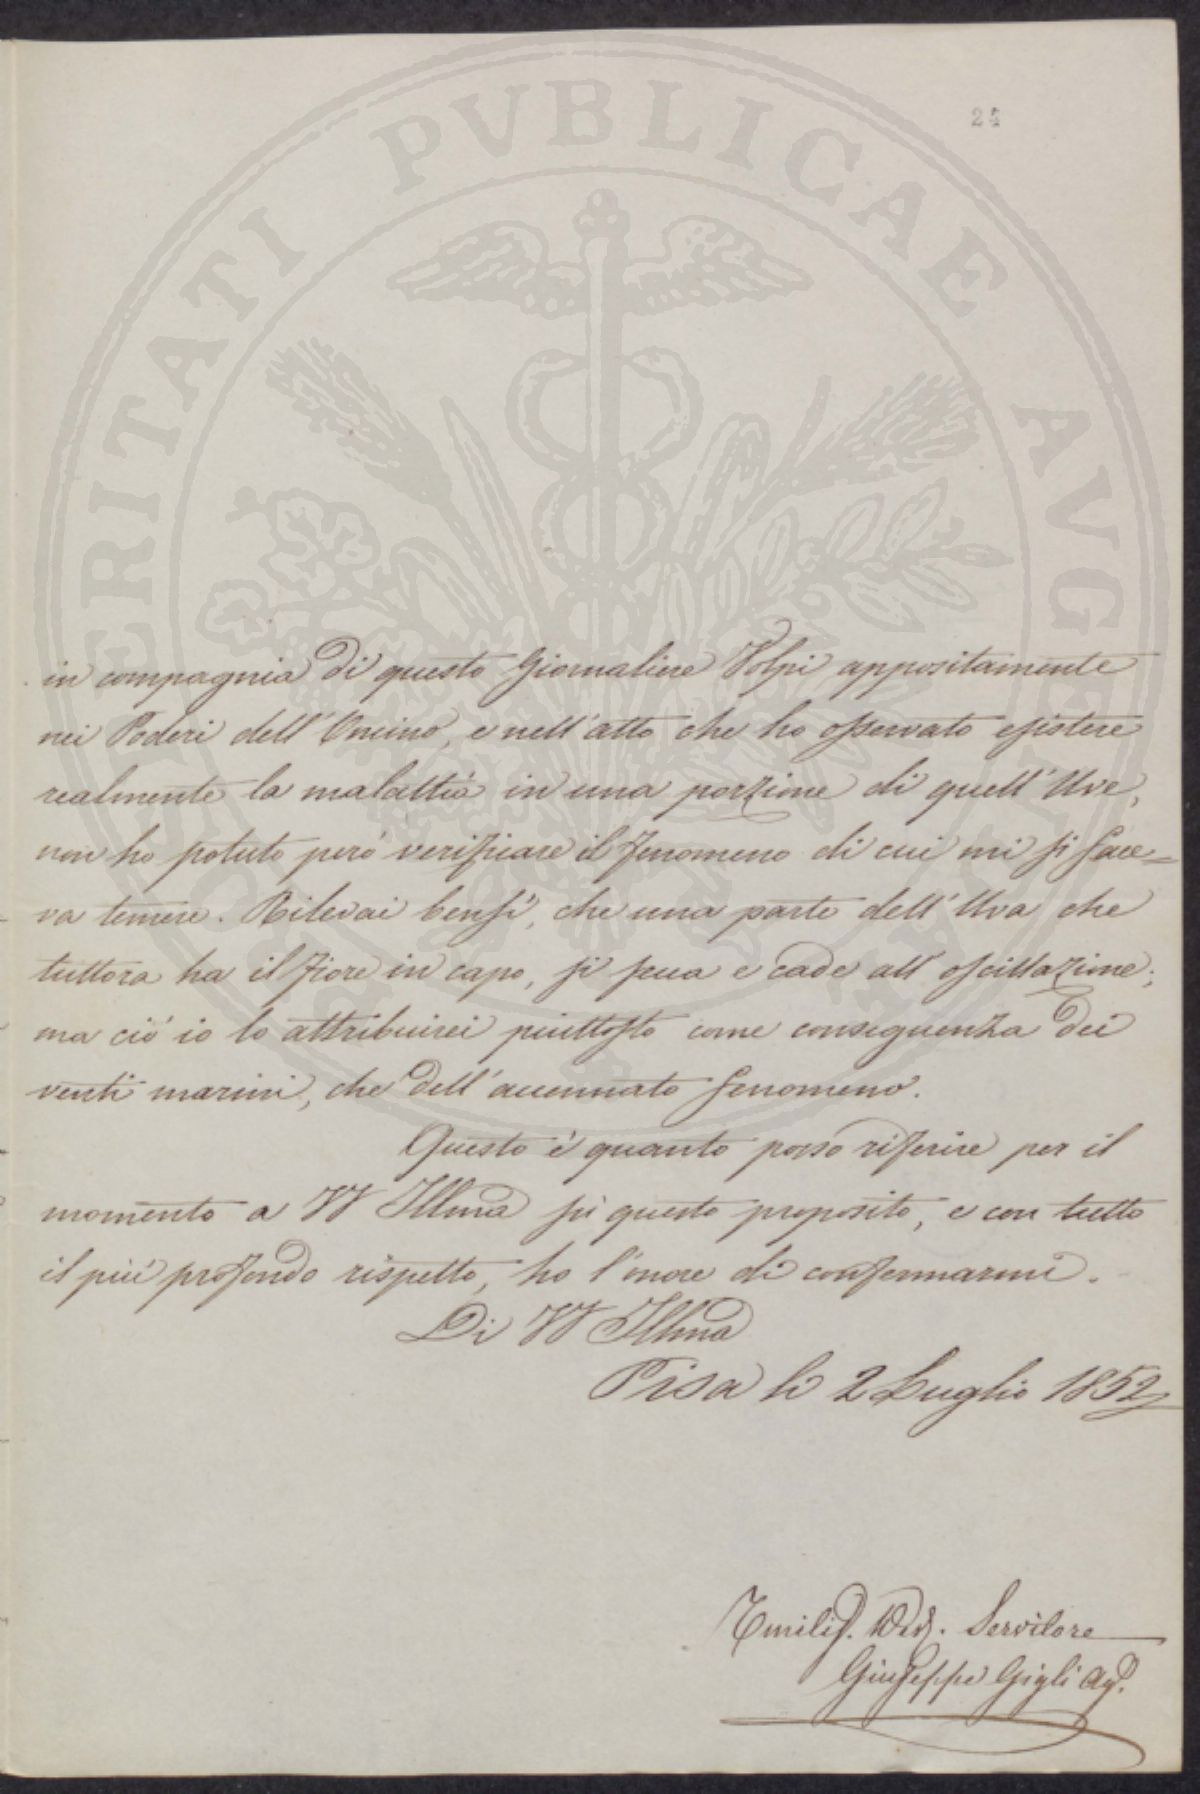 PROSPERITATI PUBLICAE AVGENDAE
24
in compagnia di questo Giornaliere Volpi appositamente
nei Poderi dell' Oncino, e nell' atto che ho osservato esistere
realmente la malattia in una porzione di quell' Uve,
non ho potuto però verificare il fenomeno di cui mi si face=
va temere. Rilevai bensì, che una parte dell' Uva che
tuttora ha il fiore in capo, si secca e cade all' oscillazione;
ma ciò io lo attribuirei piuttosto come conseguenza dei
venti marini, che dell' accennato fenomeno.
Questo è quanto posso riferire per il
momento a VS Illma su questo proposito, e con tutto
il più profondo rispetto, ho l' onore di confermarmi.
Di VS Illma
Pisa li 2 Luglio 1852
Servitore
Giuseppe Gigli Ag.